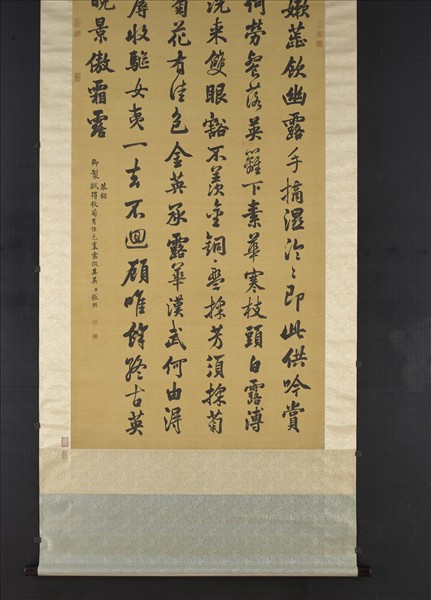 嫰蕊飲幽露手摘濕泠泠即此供吟賞
何勞餐落英籬下素華寒枝頭白露漙
洗来雙眼豁不羨金銅盤採芳須採菊
菊花有佳色金英承露華漢武何由得
辱收驅女夷一去不迴顧唯餘終古英
晚景傲霜露
恭錄
御製賦得秋菊有佳色裛露掇其英 臣張照